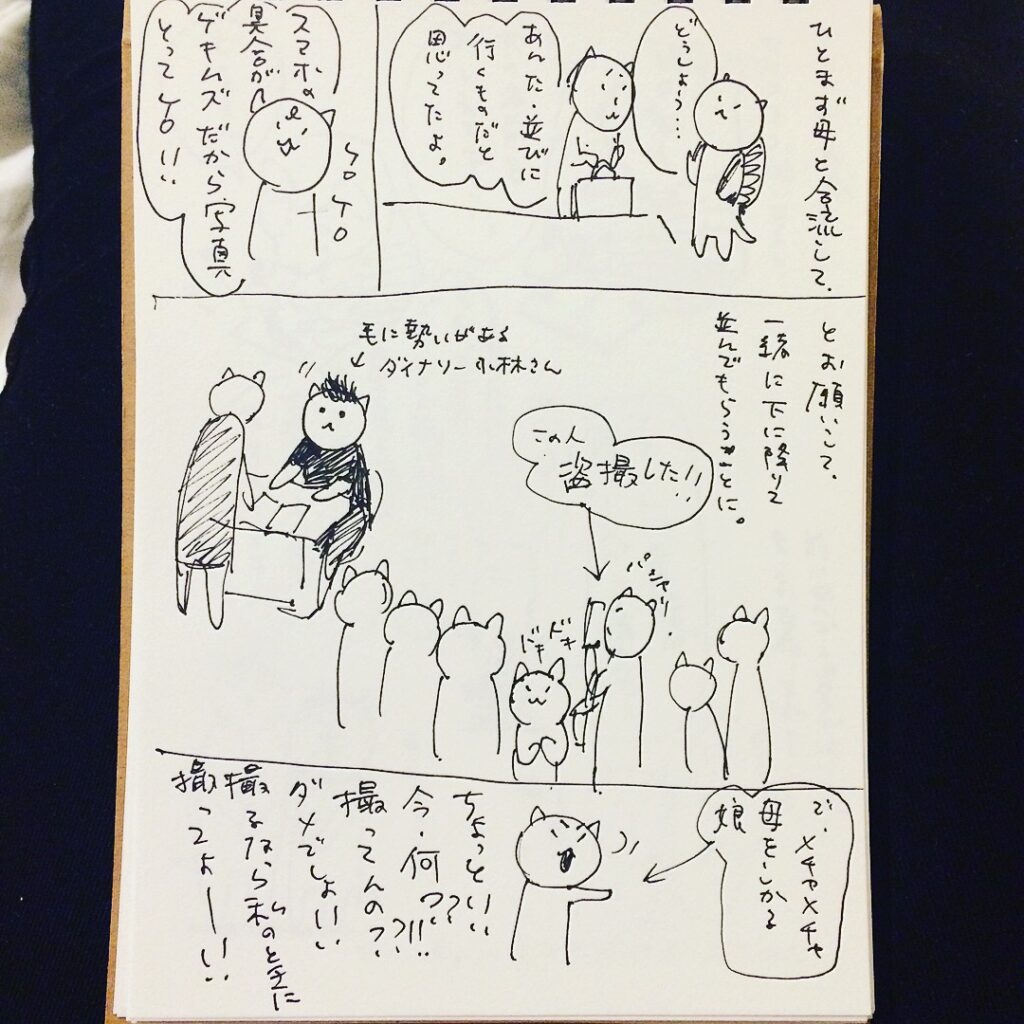 ひとまず母と合流して、
どうしよう…
あんた・並びに
行くものだと
思ってたよ。
スマホの
具合が
ゲキムズだから写真
とってケロ!!
ケロ
ケロ
とお願いして、
一緒に下に降りて
並んでもらうことに。
毛に勢いがある
ダイナソー小林さん
この人
盗撮した!!
パシャリ
ドキドキ
で、メチャメチャ
母をしかる
娘
ちょっと!!
今・何???!!
撮ってんの??
ダメでしょ!!
撮るなら私のときに
撮ってよー!!